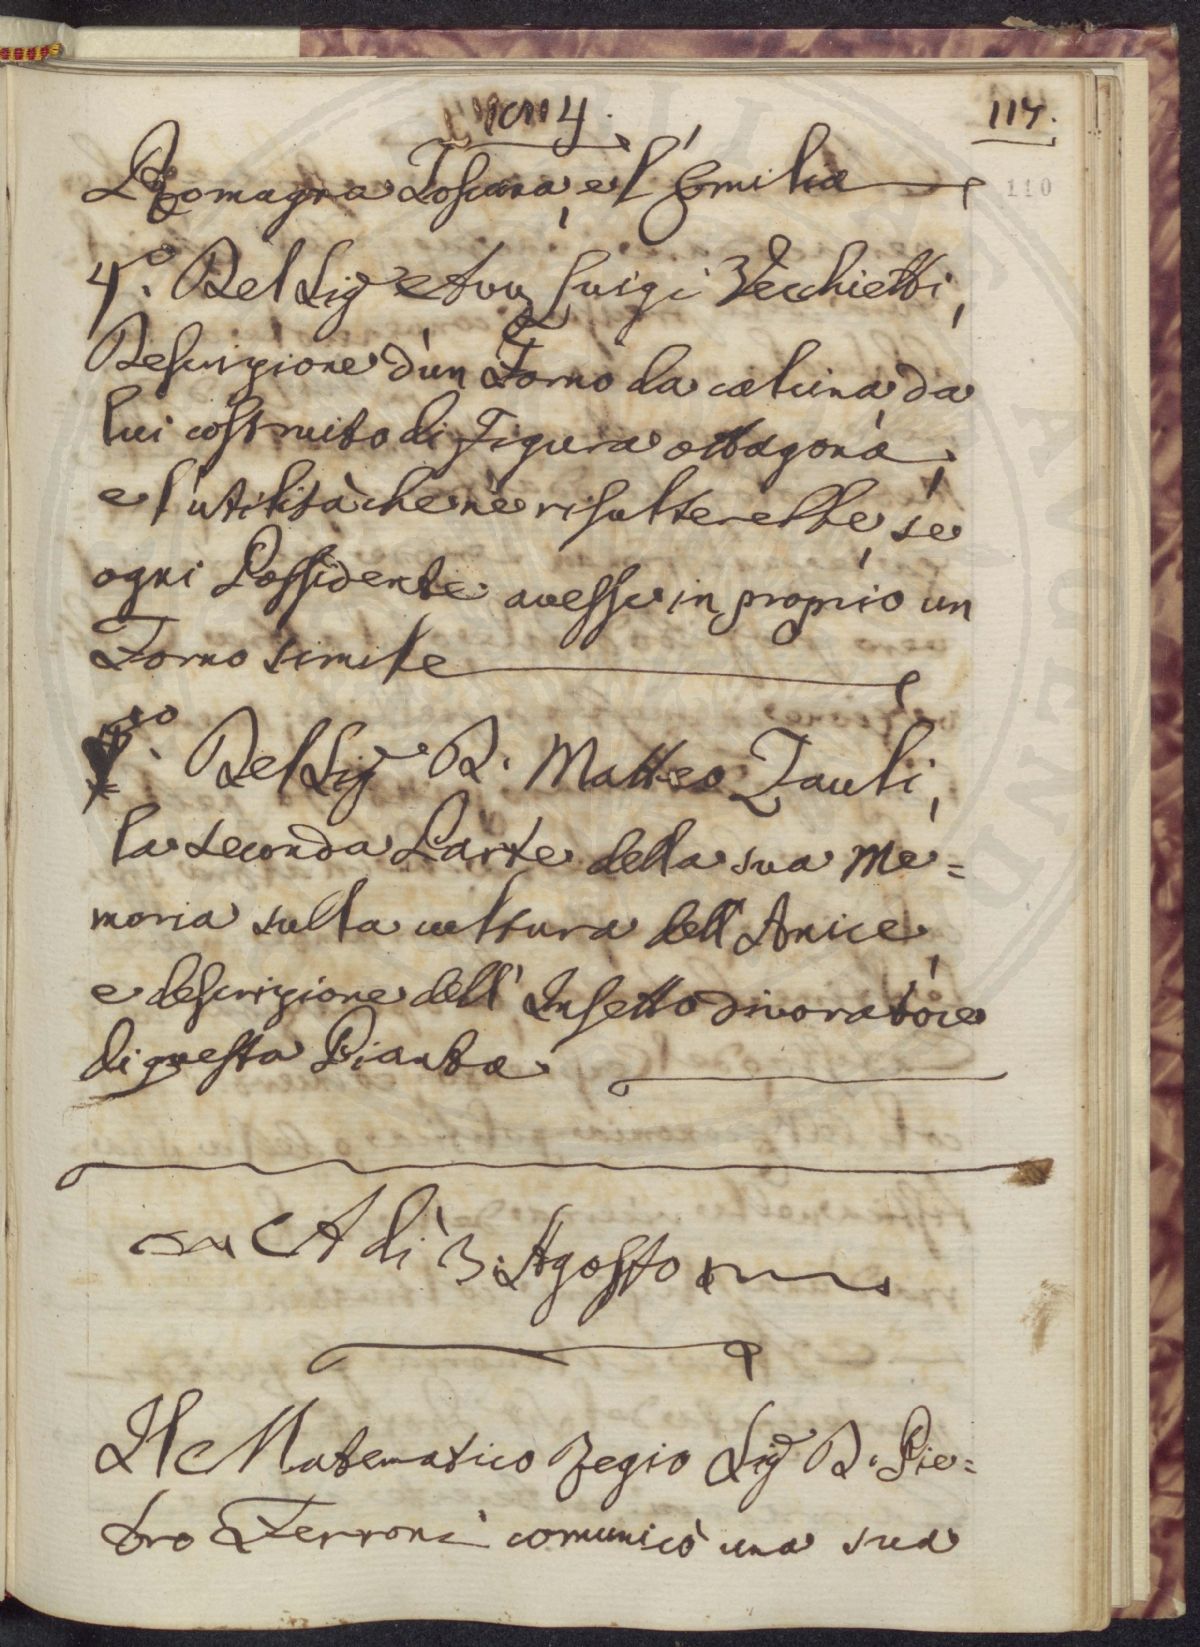 114.
110
Romagna Toscana, e l'Emilia
4.º Del Sig.e Avv. Luigi Vecchietti,
Descrizione d'un Forno da calcina, da
lui costruito di Figura ottagona,
e l'utilità che nè risulterebbe, se
ogni Possidente avesse in proprio un
Forno simile
Del Sig.e D. Matteo Zauli,
la seconda Parte della sua Me=
moria sulla cultura dell'Anice,
e descrizione dell'Insetto divoratore
di questa Pianta
A dì 3. Agosto
Il Matematico Regio Sig.e D. Pie=
tro Ferroni comunicò una sua